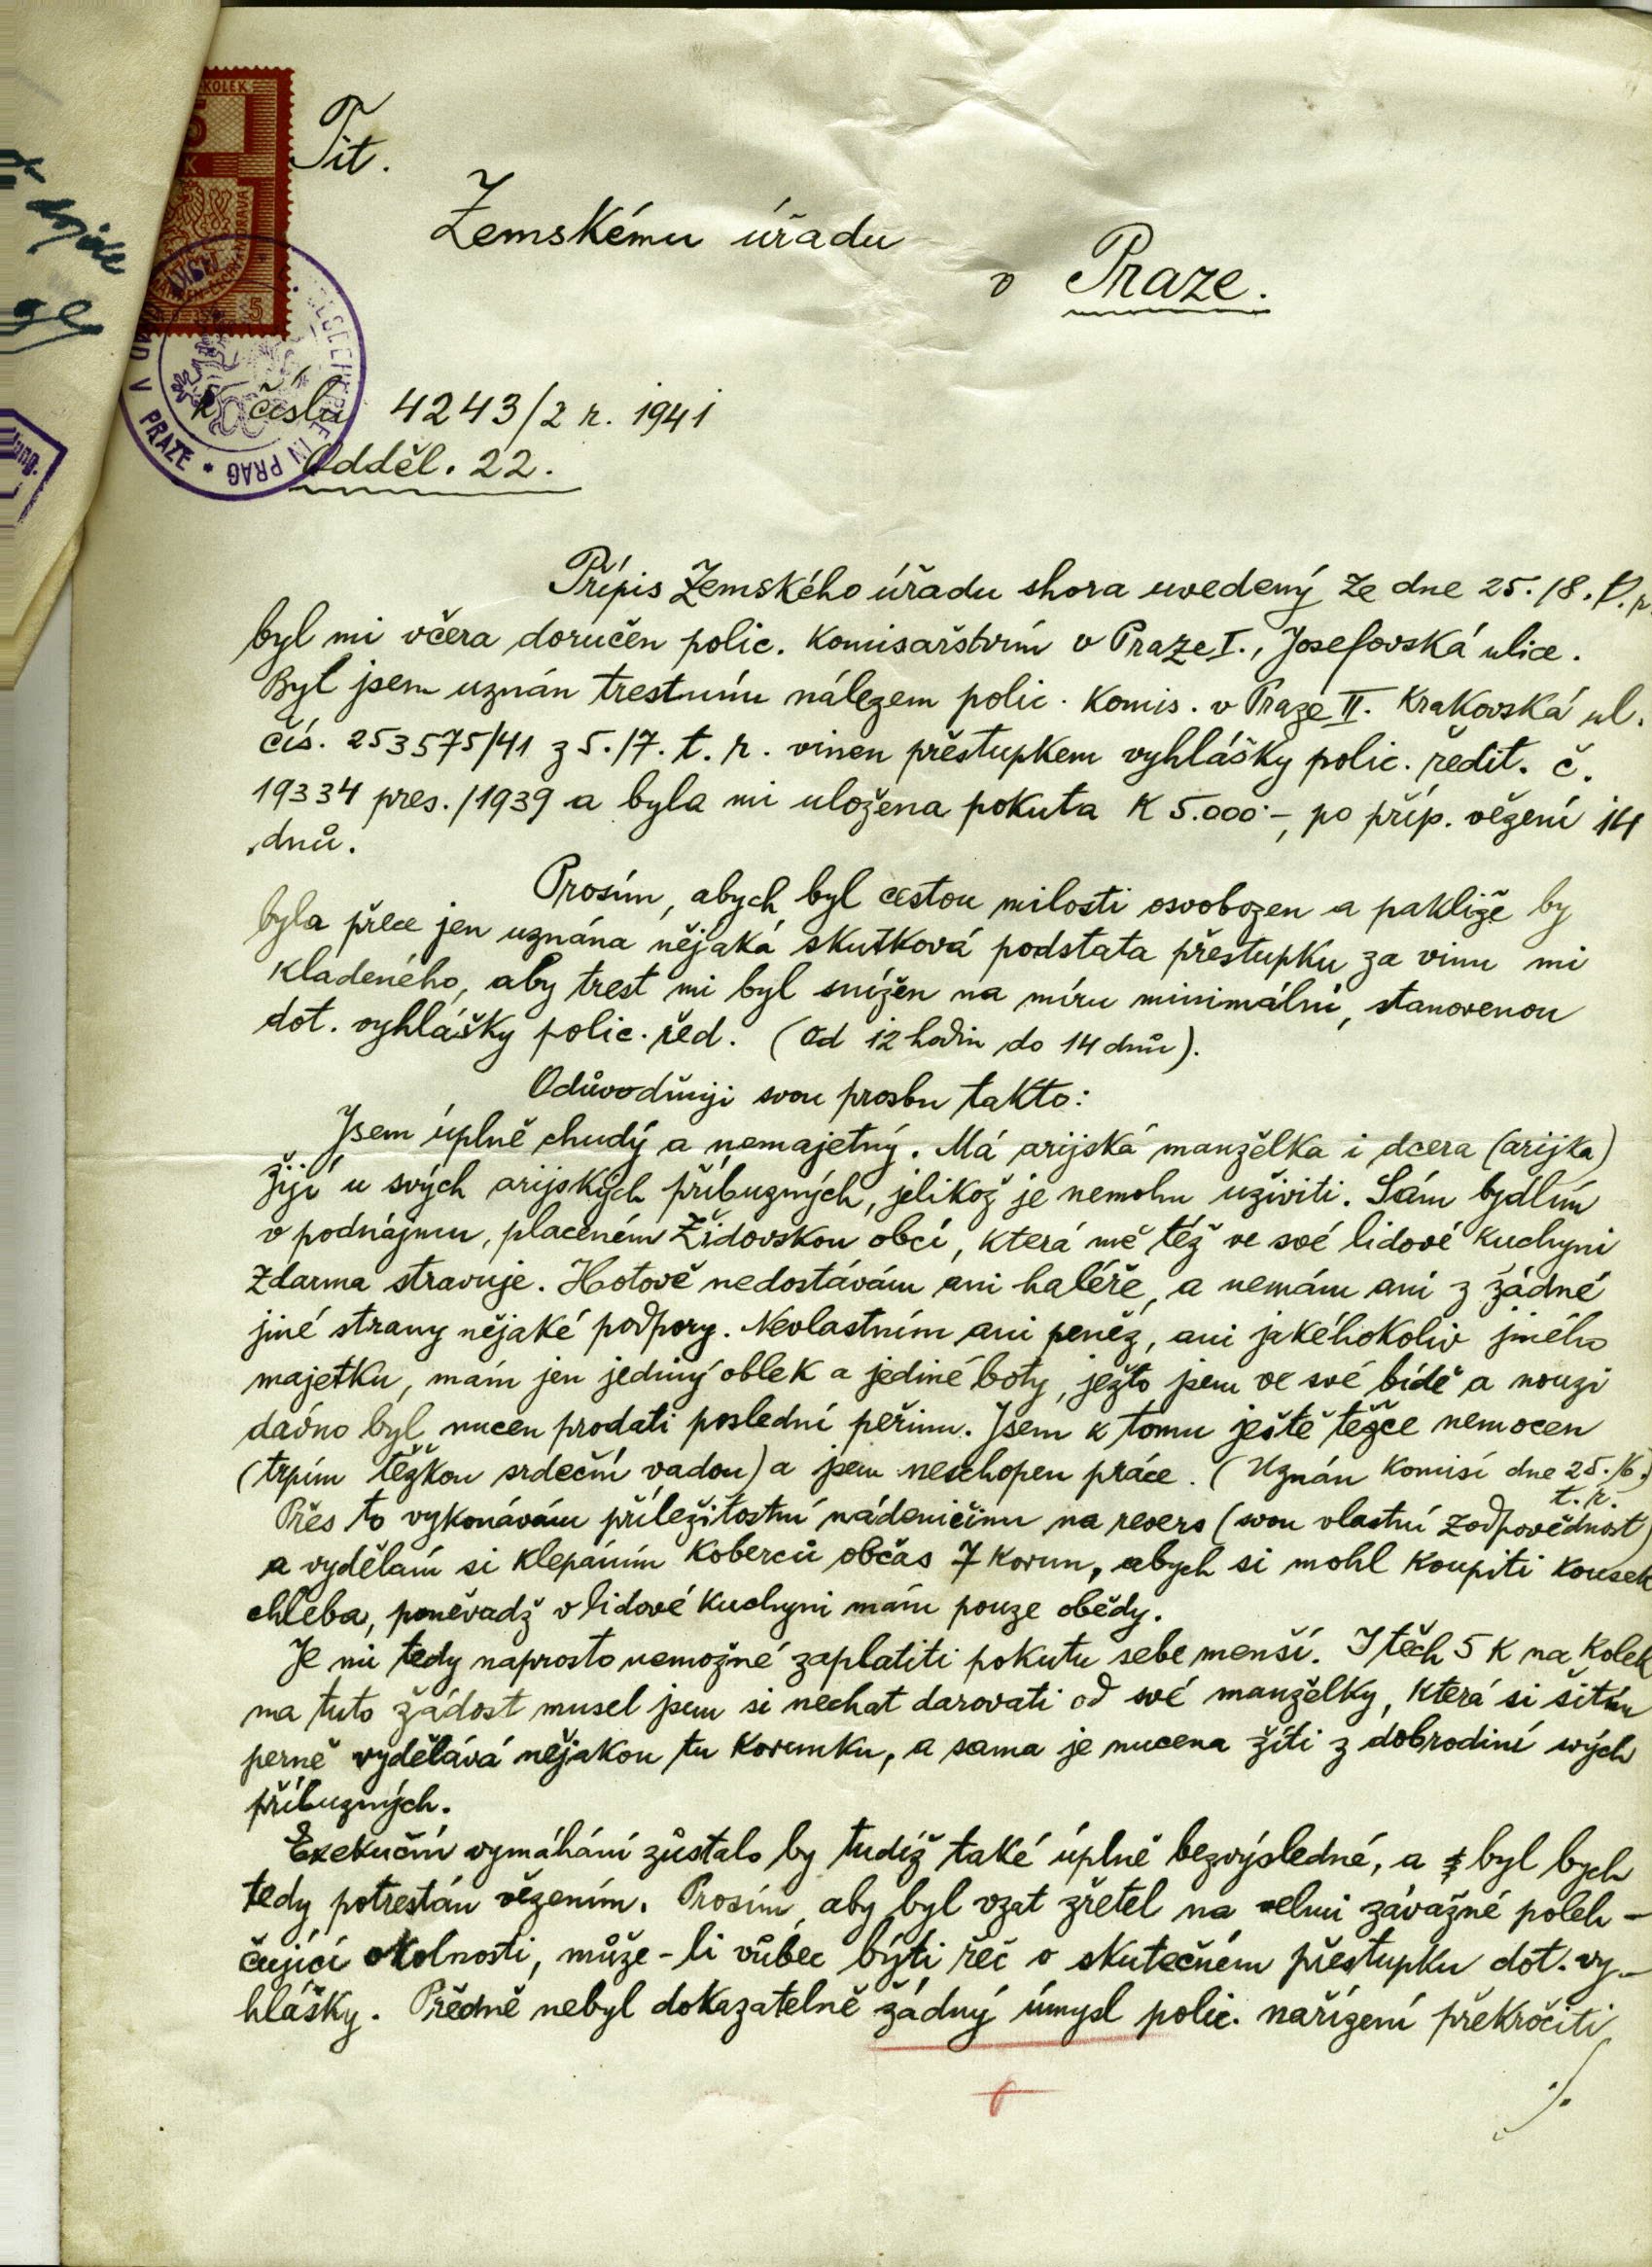 KOLEK
5
K
Tit.
Zemskému úřadu
v Praze.
5
PRAZE * PRAG
k číslu 4243/2 r. 1941
Odděl. 22.
Přípis Zemského úřadu shora uvedený ze dne 25./8. t. r.
byl mi včera doručen polic. komisařstvím v Praze I., Josefovská ulice.
Byl jsem uznán trestním nálezem polic. komis. v Praze II. Krakovská ul.
čís. 253575/41 z 5./7. t. r. vinen přestupkem vyhlášky polic. ředit. č.
19334 pres./1939 a byla mi uložena pokuta K 5.000·-, po příp. vězení 14
dnů.
Prosím, abych byl cestou milosti osvobozen a pakliže by
byla přece jen uznána nějaká skutková podstata přestupku za vinu mi
kladeného, aby trest mi byl snížen na míru minimální, stanovenou
dot. vyhlášky polic. řed. (od 12 hodin do 14 dnů).
Odůvodňuji svou prosbu takto:
Jsem úplně chudý a nemajetný. Má arijská manželka i dcera (arijka)
žijí u svých arijských příbuzných, jelikož je nemohu uživiti. Sám bydlím
v podnájmu, placeném Židovskou obcí, která mě též ve své lidové kuchyni
zdarma stravuje. Hotově nedostávám ani haléře, a nemám ani z žádné
jiné strany nějaké podpory. Nevlastním ani peněz, ani jakéhokoliv jiného
majetku, mám jen jediný oblek a jediné boty, ježto jsem ve své bídě a nouzi
dávno byl nucen prodati poslední peřinu. Jsem k tomu ještě těžce nemocen
(trpím těžkou srdeční vadou) a jsem neschopen práce. (Uznán komisí dne 25./6.
t. r.
Přes to vykonávám příležitostní nádeničinu na revers (svou vlastní zodpovědnost)
a vydělám si klepáním koberců občas 7 korun, abych si mohl koupiti kousek
chleba, poněvadž v lidové kuchyni mám pouze obědy.
Je mi tedy naprosto nemožné zaplatiti pokutu sebe menší. I těch 5 K na kolek
na tuto žádost musel jsem si nechat darovati od své manželky, která si šitím
perně vydělává nějakou tu korunku, a sama je nucena žíti z dobrodiní svých
příbuzných.
Exekuční vymáhání zůstalo by tudíž také úplně bezvýsledné, a byl bych
tedy potrestán vězením. Prosím, aby byl vzat zřetel na velmi závažné poleh-
čující okolnosti, může-li vůbec býti řeč o skutečném přestupku dot. vy-
hlášky. Předně nebyl dokazatelně žádný úmysl polic. nařízení překročiti
./.